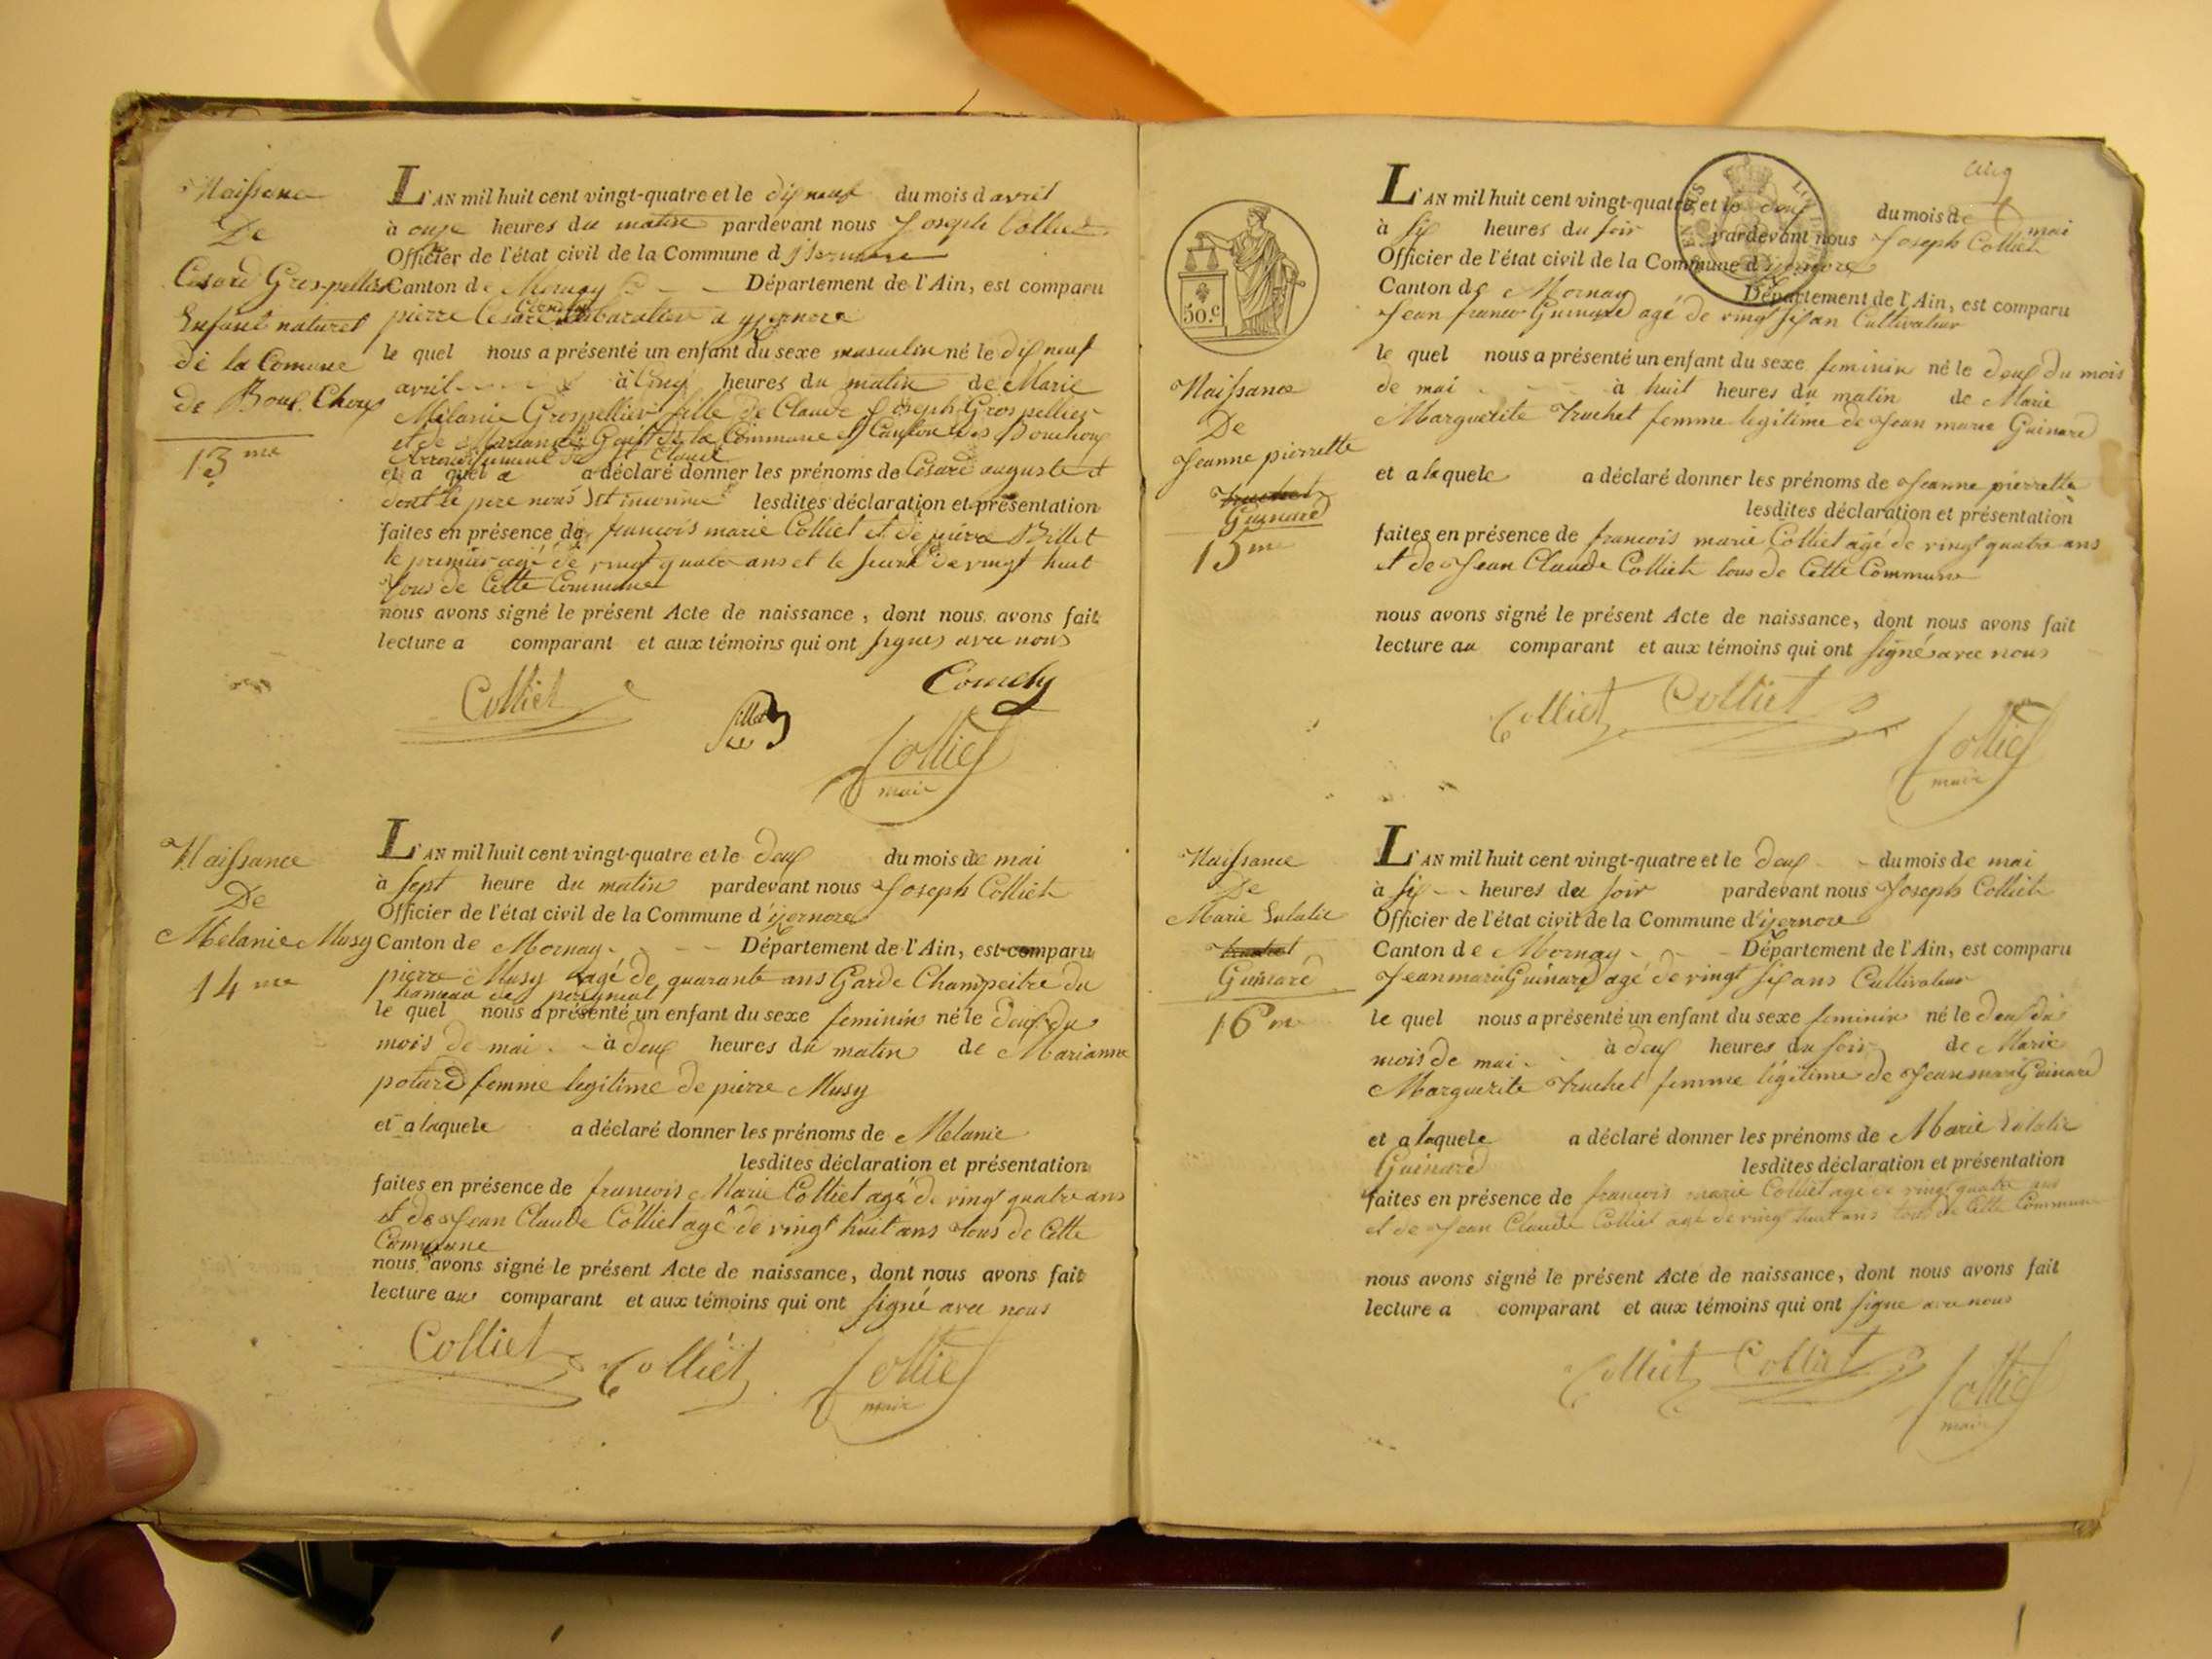 Naissance
De
Césard Grospellier
Enfant naturel
de la Comune
de Bouchoux
13me
L'AN mil huit cent vingt-quatre et le dix neuf du mois d avril
à onze heures du matin pardevant nous Joseph Colliet
Officier de l'état civil de la Commune d
Canton de Mornay Département de l'Ain, est comparu
pierre Cesard
le quel nous a présenté un enfant du sexe masculin né le dix neuf
avril à Cinq heures du matin de Marie
Mélanie Grospellier fille de Claude Joseph Grospellier
et de Marianne de la Commune et Canton des Bouchoux
Arrondissement de St Claude
et a quel a a déclaré donner les prénoms de Césard auguste et
dont le pere nous est inconnu lesdites déclaration et présentation
faites en présence de francois marie Colliet et de pierre Billet
le premier agé de vingt quatre ans et le second de vingt huit
tous de Cette Commune
nous avons signé le présent Acte de naissance, dont nous avons fait
lecture a comparant et aux témoins qui ont signés avec nous
Colliet
Comely
Colliet
maire
Naissance
De
Mélanie Musy
14me
L'AN mil huit cent vingt-quatre et le deux du mois de mai
à sept heure du matin pardevant nous Joseph Colliet
Officier de l'état civil de la Commune d'izernore
Canton de Mornay Département de l'Ain, est comparu
pierre Musy agé de quarante ans Garde Champeitre du
hameau de
le quel nous a présenté un enfant du sexe feminin né le deux du
mois de mai à deux heures du matin de Marianne
potard femme legitime de pierre Musy
et a laquele a déclaré donner les prénoms de Mélanie
lesdites déclaration et présentation
faites en présence de francois Marie Colliet agé de vingt quatre ans
et de Jean Claude Colliet agé de vingt huit ans tous de Cette
Commune
nous avons signé le présent Acte de naissance, dont nous avons fait
lecture au comparant et aux témoins qui ont signé avec nous
Colliet Colliet Colliet
maire
50.c
Naissance
De
Jeanne pierrette
Truchet
Guinard
15me
L'AN mil huit cent vingt-quatre et le deux du mois de mai
à six heures du soir pardevant nous Joseph Colliet
Officier de l'état civil de la Commune d'izernore
Canton de Mornay Département de l'Ain, est comparu
Jean Guinard agé de vingt six an Cultivateur
le quel nous a présenté un enfant du sexe feminin né le deux du mois
de mai à huit heures du matin de Marie
Marguerite Truchet femme legitime de Jean marie Guinard
et a laquele a déclaré donner les prénoms de Jeanne pierrette
lesdites déclaration et présentation
faites en présence de francois marie Colliet agé de vingt quatre ans
et de Jean Claude Colliet tous de Cette Commune
nous avons signé le présent Acte de naissance, dont nous avons fait
lecture au comparant et aux témoins qui ont signé avec nous
Colliet Colliet Colliet
maire
Naissance
De
Marie Eulalie
Truchet
Guinard
16me
L'AN mil huit cent vingt-quatre et le deux du mois de mai
à six heures du soir pardevant nous Joseph Colliet
Officier de l'état civil de la Commune d'izernore
Canton de Mornay Département de l'Ain, est comparu
Jean marie Guinard agé de vingt six ans Cultivateur
le quel nous a présenté un enfant du sexe feminin né le deux du
mois de mai à deux heures du soir de Marie
Marguerite Truchet femme légitime de Jean marie Guinard
et a laquele a déclaré donner les prénoms de Marie Eulalie
Guinard lesdites déclaration et présentation
faites en présence de francois marie Colliet agé de vingt quatre ans
et de Jean Claude Colliet agé de vingt huit ans tous de Cette Commune
nous avons signé le présent Acte de naissance, dont nous avons fait
lecture a comparant et aux témoins qui ont signe avec nous
Colliet Colliet Colliet
maire